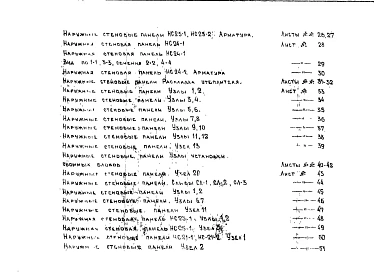 Наружные стеновые панели НС23-1, НС23-2. Арматура. Листы № 26,27
Наружная стеновая панель НС24-1 Лист № 28
Наружная стеновая панель НС24-1
Вид по 1-1, 3-3, сечения 2-2, 4-4 —"— 29
Наружная стеновая панель НС24-1. Арматура —"— 30
Наружные стеновые панели. Раскладка утеплителя. Листы № 31-32
Наружные стеновые панели. Узлы 1,2. Лист № 33
Наружные стеновые панели. Узлы 3,4. —"— 34
Наружные стеновые панели. Узлы 5,6. —"— 35
Наружные стеновые панели. Узлы 7,8 —"— 36
Наружные стеновые панели. Узлы 9,10 —"— 37
Наружные стеновые панели. Узлы 11,12 —"— 38
Наружные стеновые панели. Узел 13 —"— 39
Наружные стеновые панели. Узлы установки
оконных блоков Листы № 40-42
Наружные стеновые панели. Узел 20 Лист № 43
Наружные стеновые панели. —"— 44
Наружные стеновые панели. Узлы 1,2 —"— 45
Наружные стеновые панели. Узлы 6,7 —"— 46
Наружные стеновые панели. Узел 11 —"— 47
Наружная стеновая панель НС23-1. Узлы 1,2 —"— 48
Наружная стеновая панель НС23-1. Узлы —"— 49
Наружные стеновые панели НС21-1, НС-24-2. Узел 1 —"— 50
Наружные стеновые панели Узел 2 —"— 51